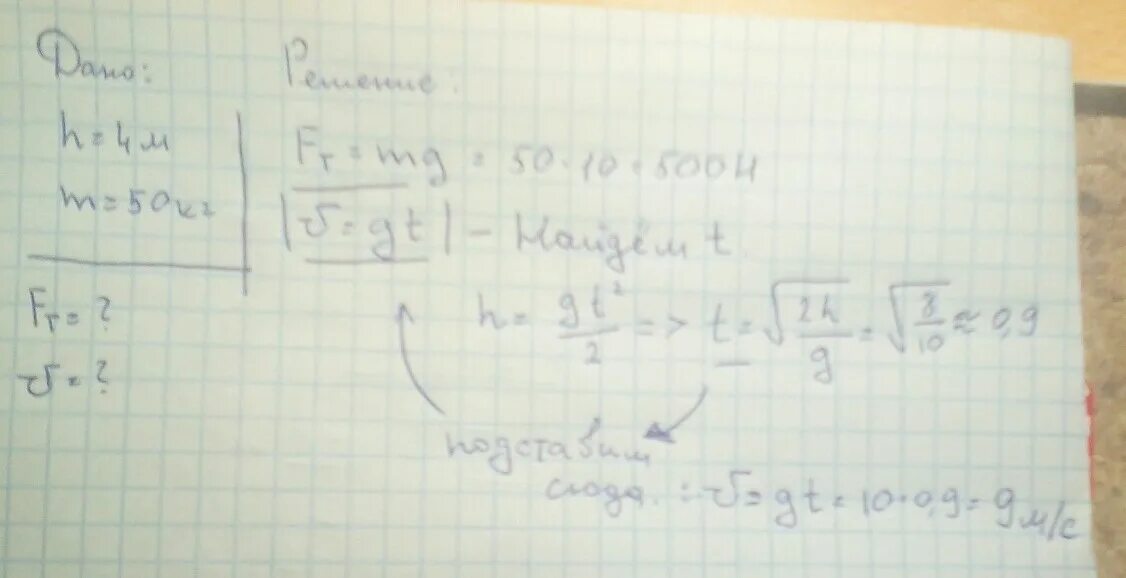 Дано:
h = 4м
m = 50кг
Fт = ?
v = ?
Решение:
Fт = mg = 50·10 = 500Н
|v = gt| – Найдём t.
h = gt²/2 => t = √(2h/g) = √(8/10) ≈ 0,9
подставим
сюда : v = gt = 10·0,9 = 9м/с